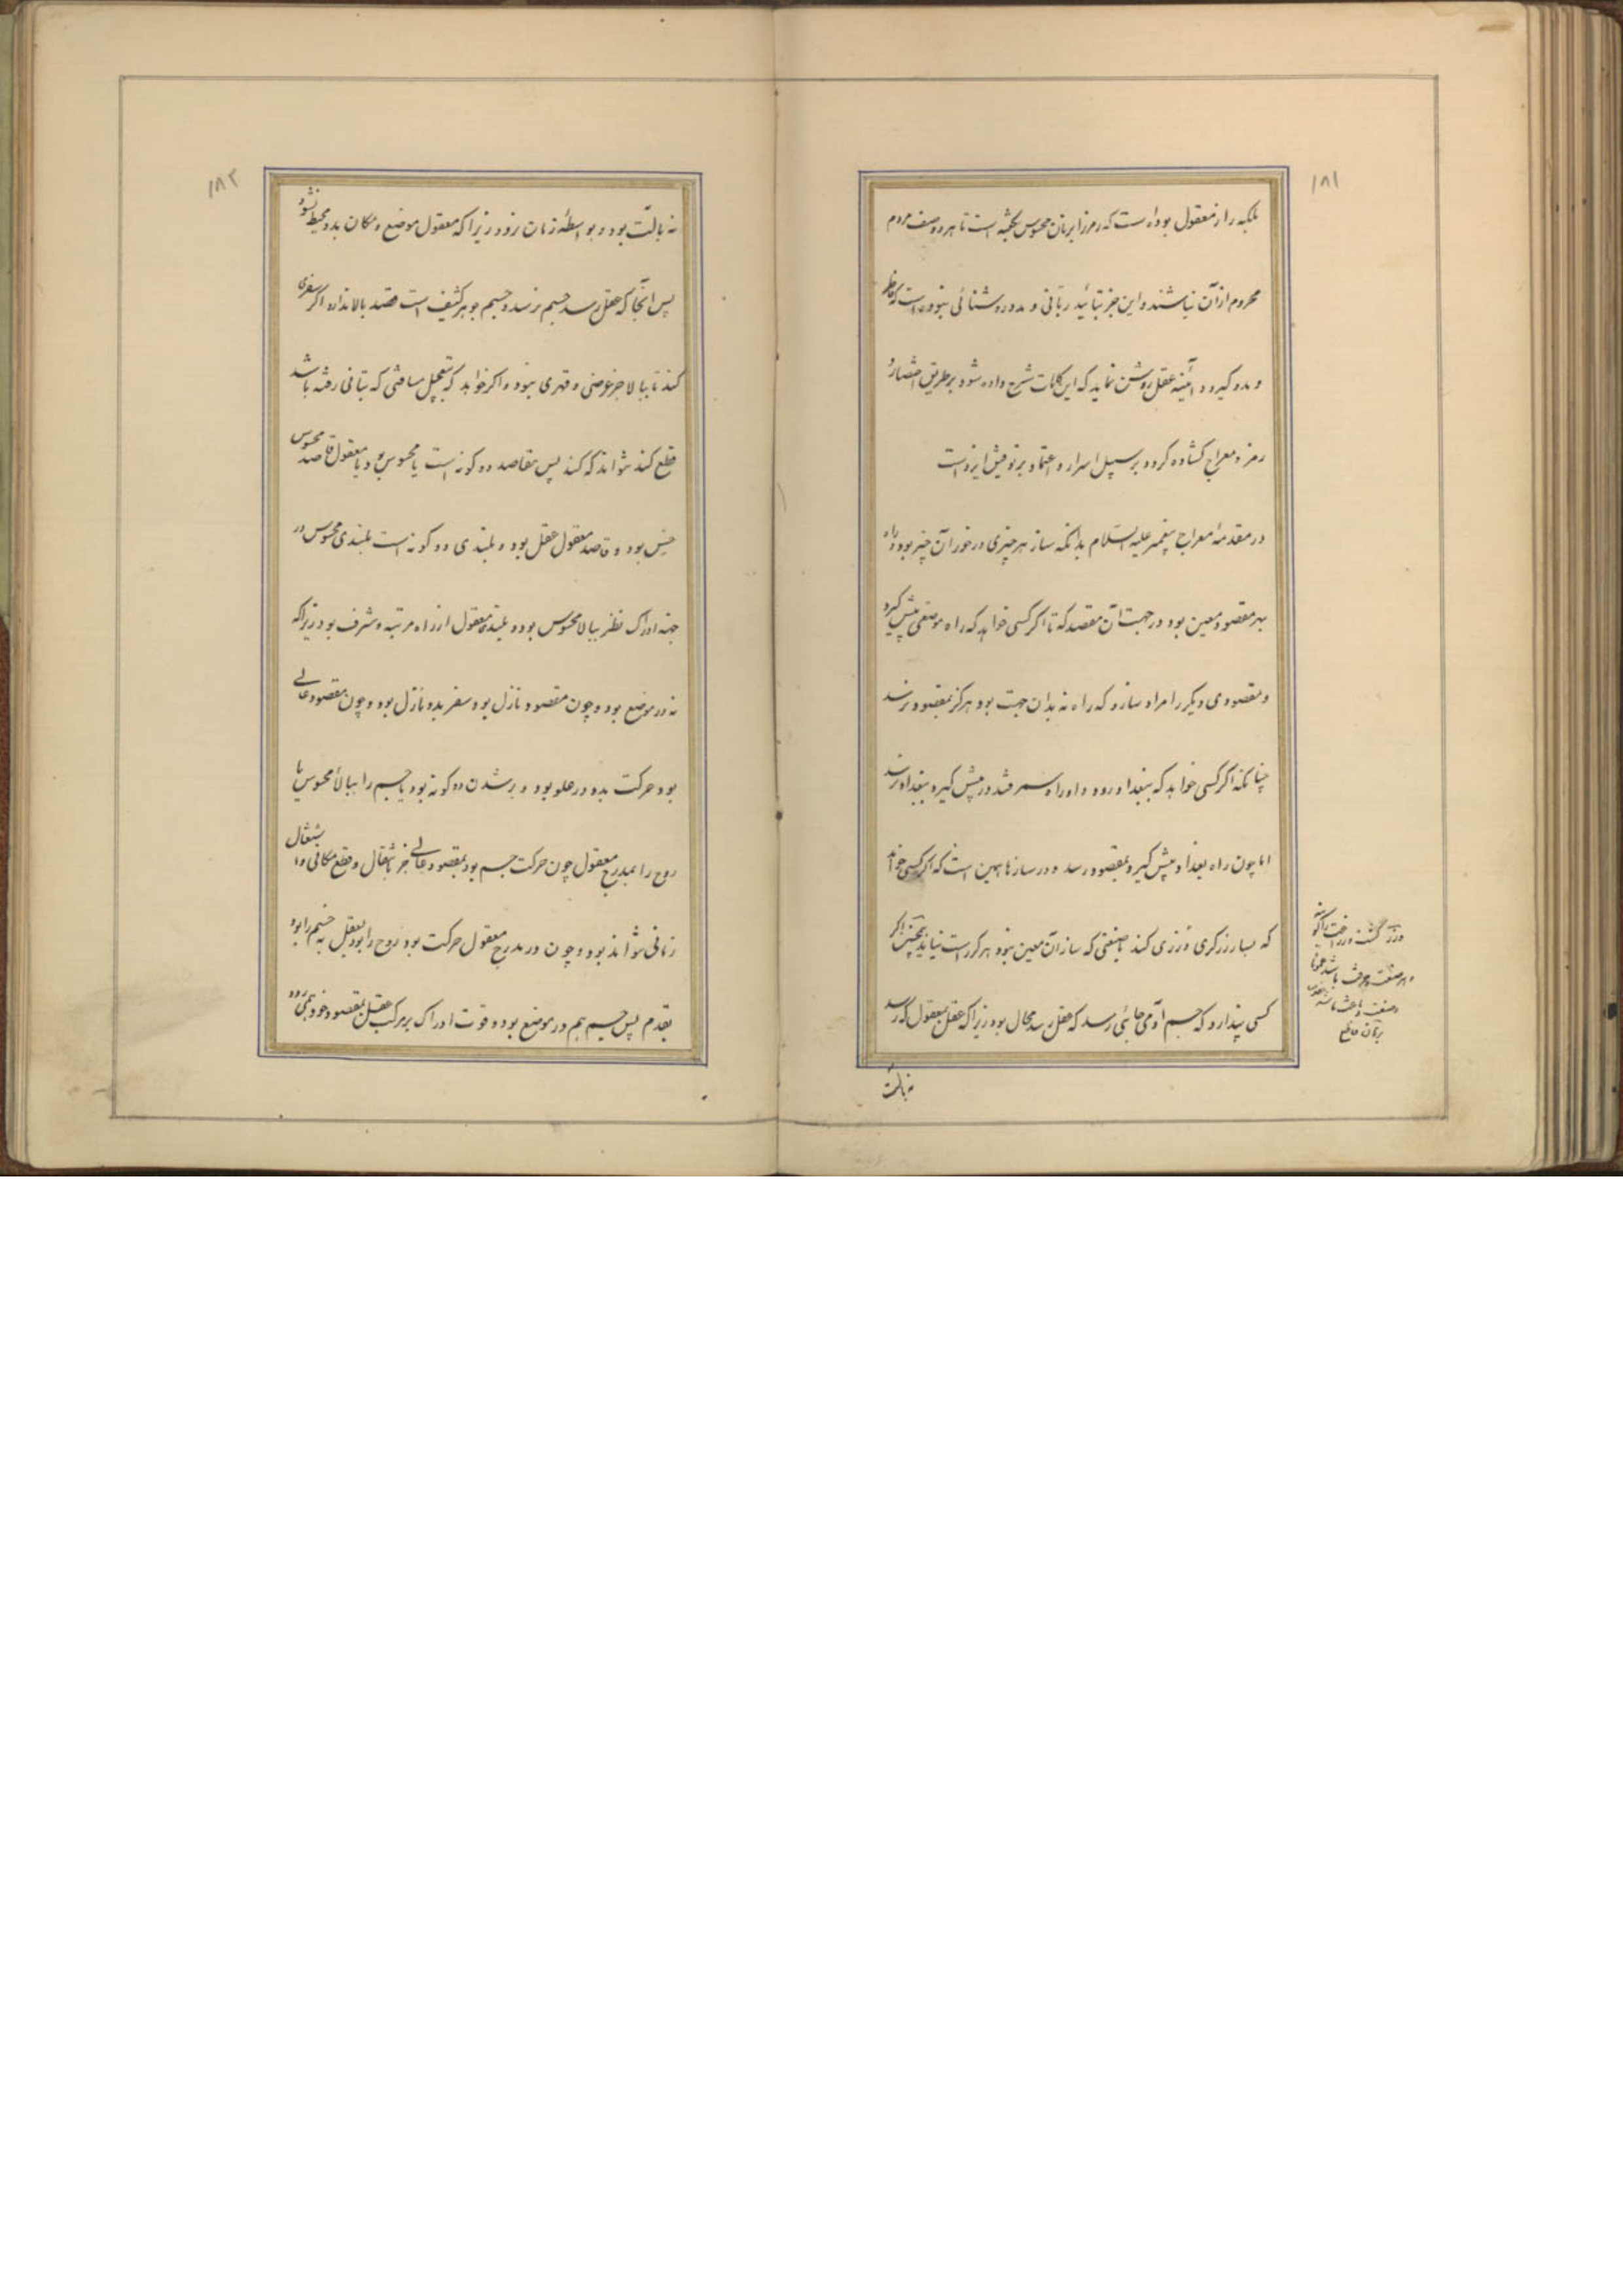 ۱۸۱
بلکه راز معقول بوده است که رمز بزبان محسوس بگفته است تا هر دو صنف مردم
محروم از آن نباشند و این جز بتائید ربانی و مدد روشنائی نبوده است که خاطر
و مدد گیرد و آئینه عقل روشن نماید که این کلمات شرح داده شود بر طریق اختصار و
رمز معراج کشاده کرده بر سبیل اسرار و اعتماد بر توفیق ایزد است
در مقدمه معراج پیغمبر علیه السلام بدانکه ساز هر چیزی در خور آن چیز بود و راه
بهر مقصود معین بود در جهت آن مقصد که تا اگر کسی خواهد که راه موضعی پیش گیرد
و مقصودی دیگر را مراد سازد که راه نه بدان جهت بود هرگز بمقصود نرسد
چنانکه اگر کسی خواهد که ببغداد رود و او راه سمرقند در پیش گیرد ببغداد نرسد
اما چون راه بغداد پیش گیرد بمقصود رسد و در سازها همین است که اگر کسی خواهد
که بساز زرگری درزی کند یا صنعتی که ساز آن معین نبود هرگز راست نیاید همچنین اگر
کسی پندارد که جسم آدمی جائی رسد که عقل رسد محال بود زیرا که عقل بمعقول که رسد
نه بالت
۱۸۲
نه بالت بود و بواسطه زمان نرود زیرا که معقول موضع و مکان بدو محیط نشود
پس آنجا که عقل رسد جسم نرسد و جسم جوهر کثیف است قصد بالا ندارد اگر سفری
کند تا ببالا جز عرضی و قهری نبود و اگر خواهد که بتعجیل مسافتی که بتانی رفته باشد
قطع کند نتواند که کند پس مقاصد دو گونه است یا محسوس بود یا معقول قاصد محسوس
حس بود و قاصد معقول عقل بود و بلندی دو گونه است بلندی محسوس در
جنبه ادراک نظر ببالا محسوس بود و بلندی معقول از راه مرتبه و شرف بود زیرا که
نه در موضع بود و چون مقصود نازل بود سفر بدو نازل بود و چون مقصود عالی
بود حرکت بدو در علو بود و بر شدن دو گونه بود یا جسم را ببالاء محسوس یا
روح را بمدرج معقول چون حرکت جسم بود بمقصود عالی جز بانتقال و قطع مکانی و اشتغال
زمانی نتواند بود و چون در مدرج معقول حرکت بود روح را بود بعقل نه جسم را بود
بقدم پس جسم هم در موضع بود و قوت ادراک بر مرکب عقل بمقصود خود همی رود